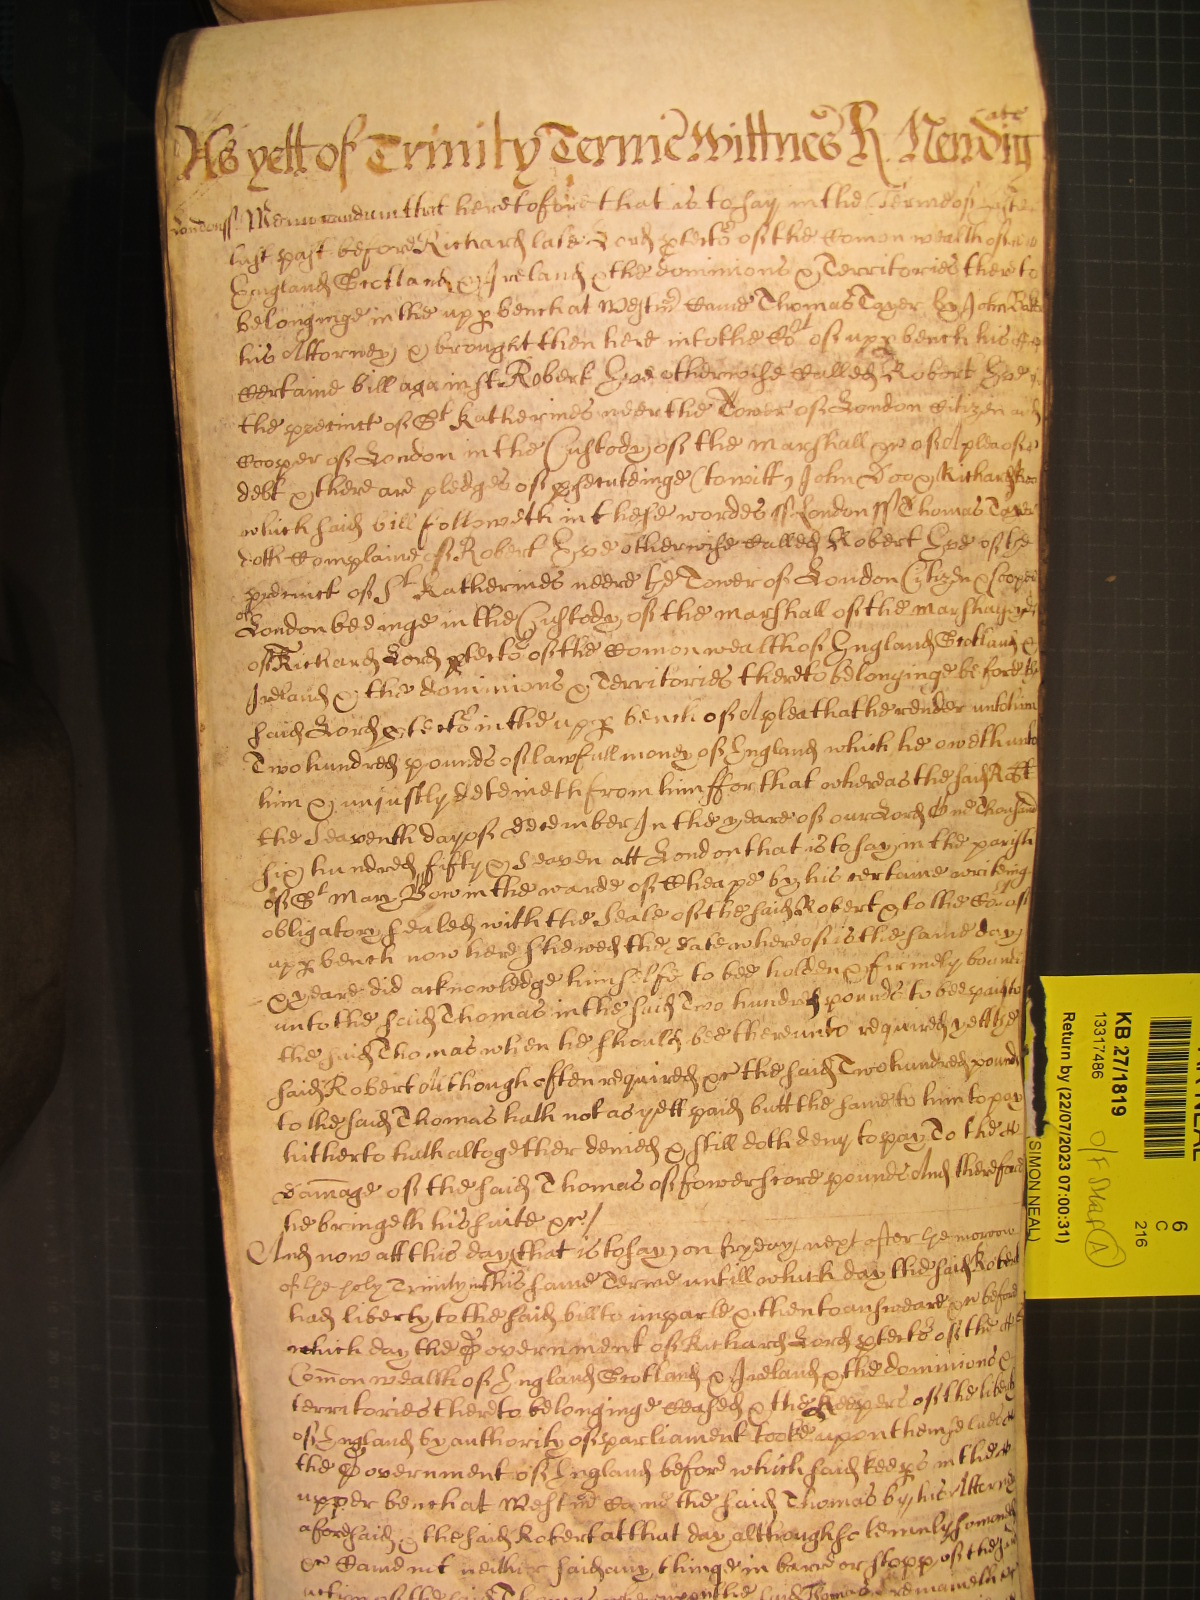 As yett of Trinity Terme Wittnes R. Newdig
ate
London ss Memorandum that heretofore that is to say in the Terme of Easter
last past before Richard late Lord ptector of the Comon wealth of
England Scotland & Ireland & the dominions & Territories thereto
belonginge in the upp bench at Westmr Came Thomas Tayer by John
his Attorney & brought then here into the Cort of upp bench his
Certaine bill against Robert Hoe otherwise Called Robert Hoe of
the precinct of St Katherines neer the Tower of London Citizen and
Cooper of London in the Custody of the Marshall &c of A plea of
debt & there are pledges of psecuteinge (towitt) John Doo & Richard Roo
which said bill followeth in these wordes ss London ss Thomas Tayer
doth Complaine of Robert Hoe otherwise Called Robert Hoe of the
precinct of St Katherines neere the Tower of London Citizen & Cooper
of
London beeinge in the Custody of the Marshall of the Marshalsey
of Richard Lord ptector of the Comonwealth of England Scotland &
Ireland & the dominions & Territories thereto belonginge before the
said Lord ptector in the upp bench of A plea that he render unto him
Two hundred pounds of lawfull money of England which he oweth unto
him & unjustly deteineth from him ffor that whereas the said Robt
the Seaventh day of December In the yeare of our Lord One Thousand
six hundred fifty & Seaven att London that is to say in the parish
of St Mary Bow in the warde of Cheape by his certaine writeing
obligatory sealed with the Seale of the said Robert & to the Cort of
upp bench now here shewed the date whereof is the same day
& yeare did acknowledge himselfe to bee holden & firmely bound
unto the said Thomas in the said Two hundred pounds to bee paid to
the said Thomas when he should bee thereunto required yett the
said Robert Although often required &c the said Two hundred pounds
to the said Thomas hath not as yett paid butt the same to him to pay
hitherto hath altogether denied & still doth deny to pay To the
damage of the said Thomas of fower score pounds And therefore
he bringeth his suite &c /
And now att this day (that is to say) on fryday next after the morrow
of the holy Trinity in this same Terme untill which day the said Robert
had liberty to the said bill to imparle & then to answeare &c before
which day the Government of Richard Lord ptector of the
Comon wealth of England Scotland & Ireland & the dominions &
territories thereto belonginge Ceased & the Keepers of the liberty
of England by authority of parliament tooke upon themselves
the Government of England before which said keeps in the
upper bench at Westmr Came the said Thomas by his Attorney
aforesaid & the said Robert at that day although solemnely
&c Came not neither said any thinge in barre or stopp of the
action of the said Thomas whereupon the said Thomas remaineth
KB 27/1819
13317486
Return by (22/07/2023 07:00:31)
(SIMON NEAL)
6
C
216